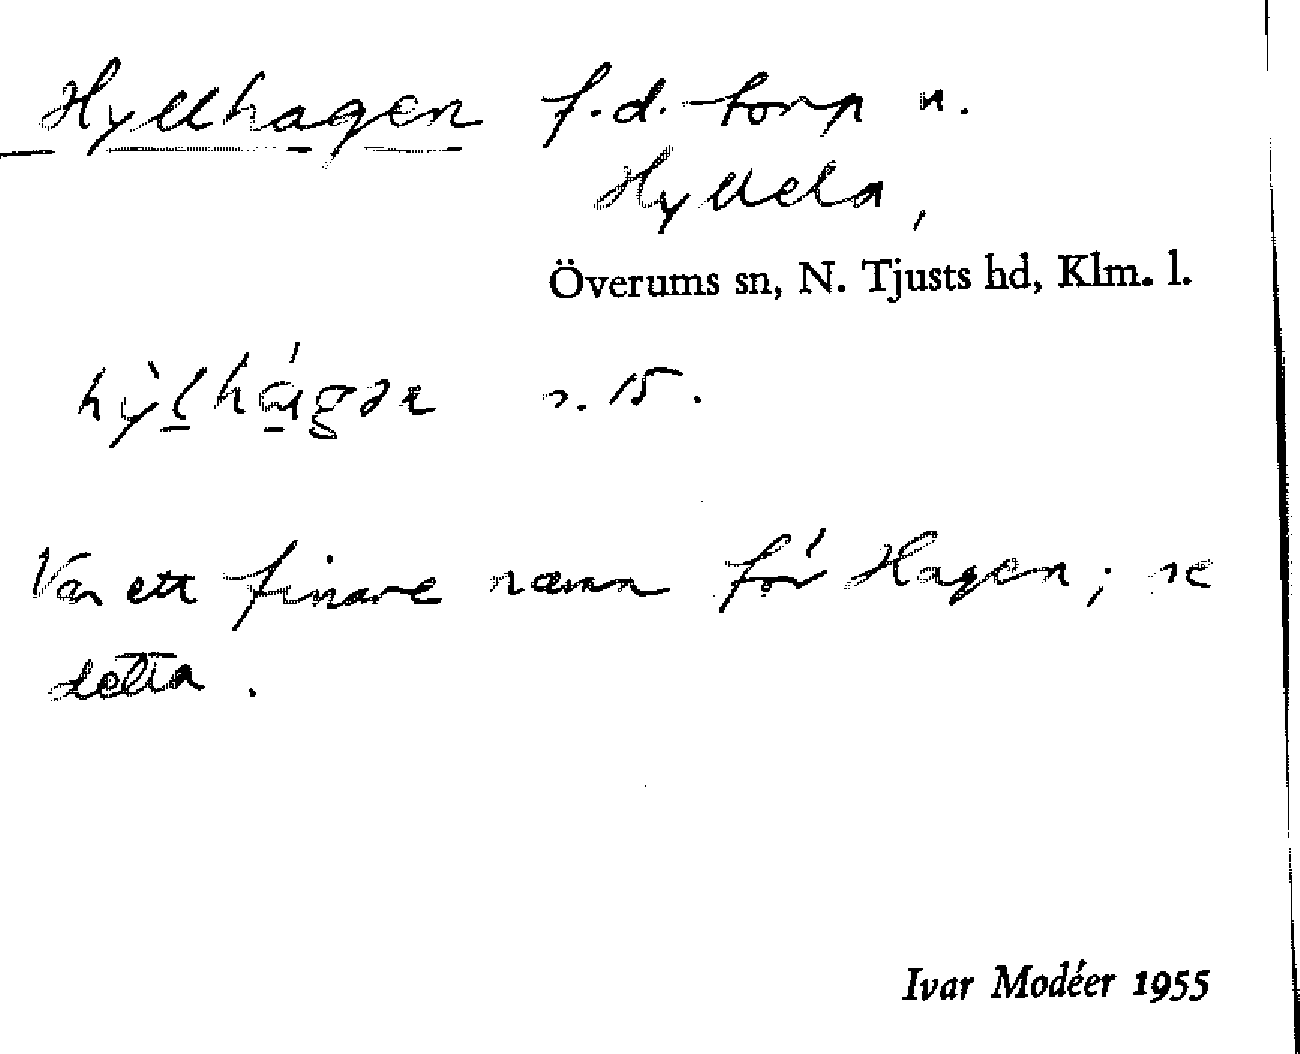 Hyllhagen f.d. torp n.
Hyllela,
Överums sn, N. Tjusts hd, Klm. l.
hỳlhágən s. 15.
Var ett finare namn för Hagen; se
detta.
Ivar Modéer 1955